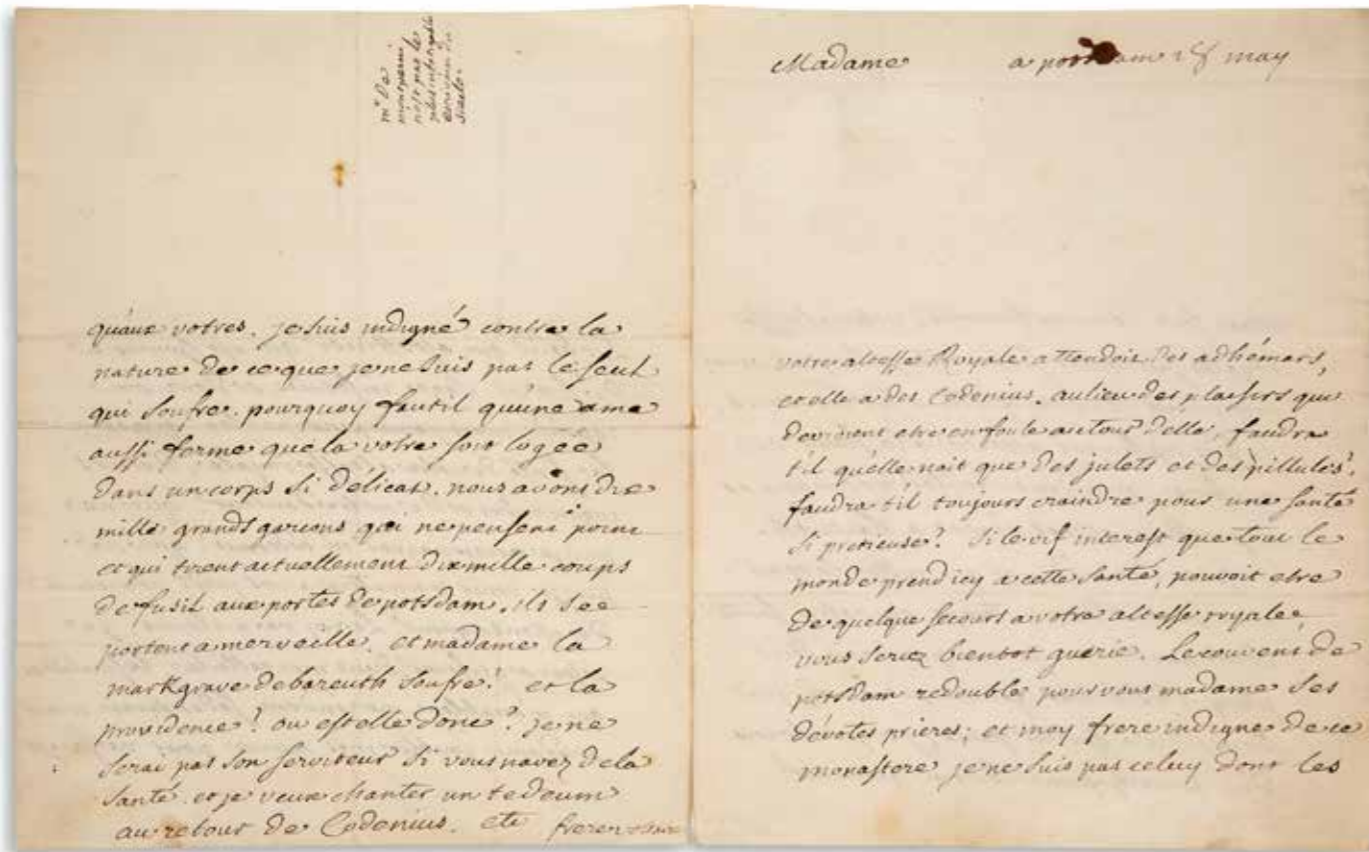 mr De
montperni
nest pas le
plus infatigable
ecrivain du
siecle.
quaux votres. je suis indigné contre la
nature de ce que je ne suis pas le seul
qui soufre. pourquoy fautil quune ame
aussi ferme que la votre soit logée
dans un corps si délicat. nous avons dix
mille grands garcons qui ne pensent point
et qui tirent actuellement dix mille coups
de fusil aux portes de potsdam. ils se
portent a merveille. et madame la
markgrave de bareuth soufre! et la
providence! ou est elle donc? je ne
serai pas son serviteur si vous navez de la
santé. et je veux chanter un tedeum
au retour de Codenius. etc frere
Madame a potsdam 28 may
votre altesse Royale attendoit des adhémars,
et elle a des Codenius. au lieu des plaisirs qui
devroient etre en foule autour delle, faudra
t'il quelle nait que des julets et des pillules?
faudra t'il toujours craindre pour une santé
si pretieuse? si le vif interest que tout le
monde prend icy a cette santé, pouvoit etre
de quelque secours a votre altesse royale
vous seriez bientot guerie. Le couvent de
potsdam redouble pour vous madame ses
dévotes prieres; et moy frere indigne de ce
monastere je ne suis pas celuy dont les